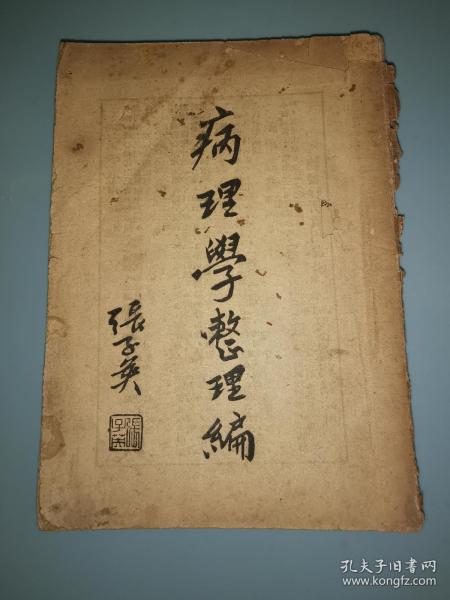 病理學整理編
張子英
張子英
孔夫子旧书网
www.kongfz.com